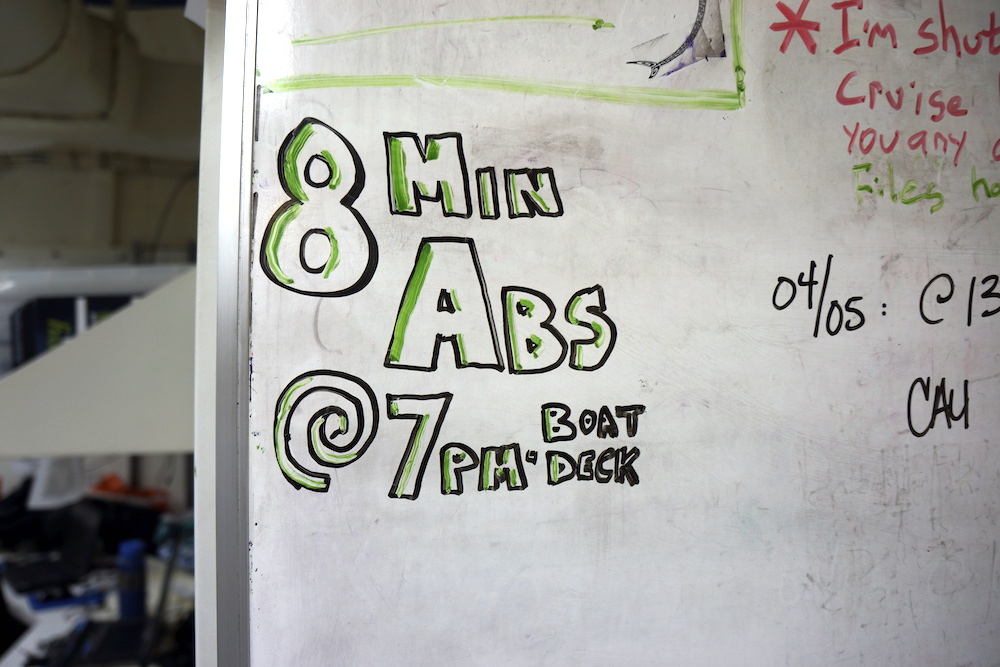 8 MIN
ABS
@7PM· BOAT
DECK
* I'm shut
Cruise
You any
Files
04/05: @ 13
CAM